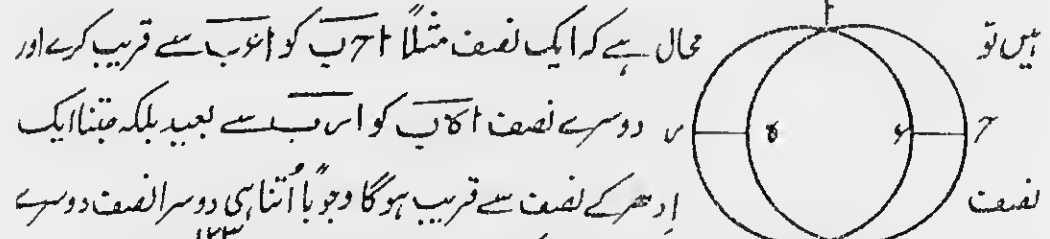 ا
ہیں تو محال ہے کہ ایک نصف مثلاً ا ح ب کو ا ء ب سے قریب کرے اور
ر ہ ء ح دوسرے نصف ا ہ ب کو ا ر ب سے بعید بلکہ جتنا ایک
نصف اِدھر کے نصف سے قریب ہوگا وجوباً اُتنا ہی دوسرا نصف دوسرے
۱۲۳